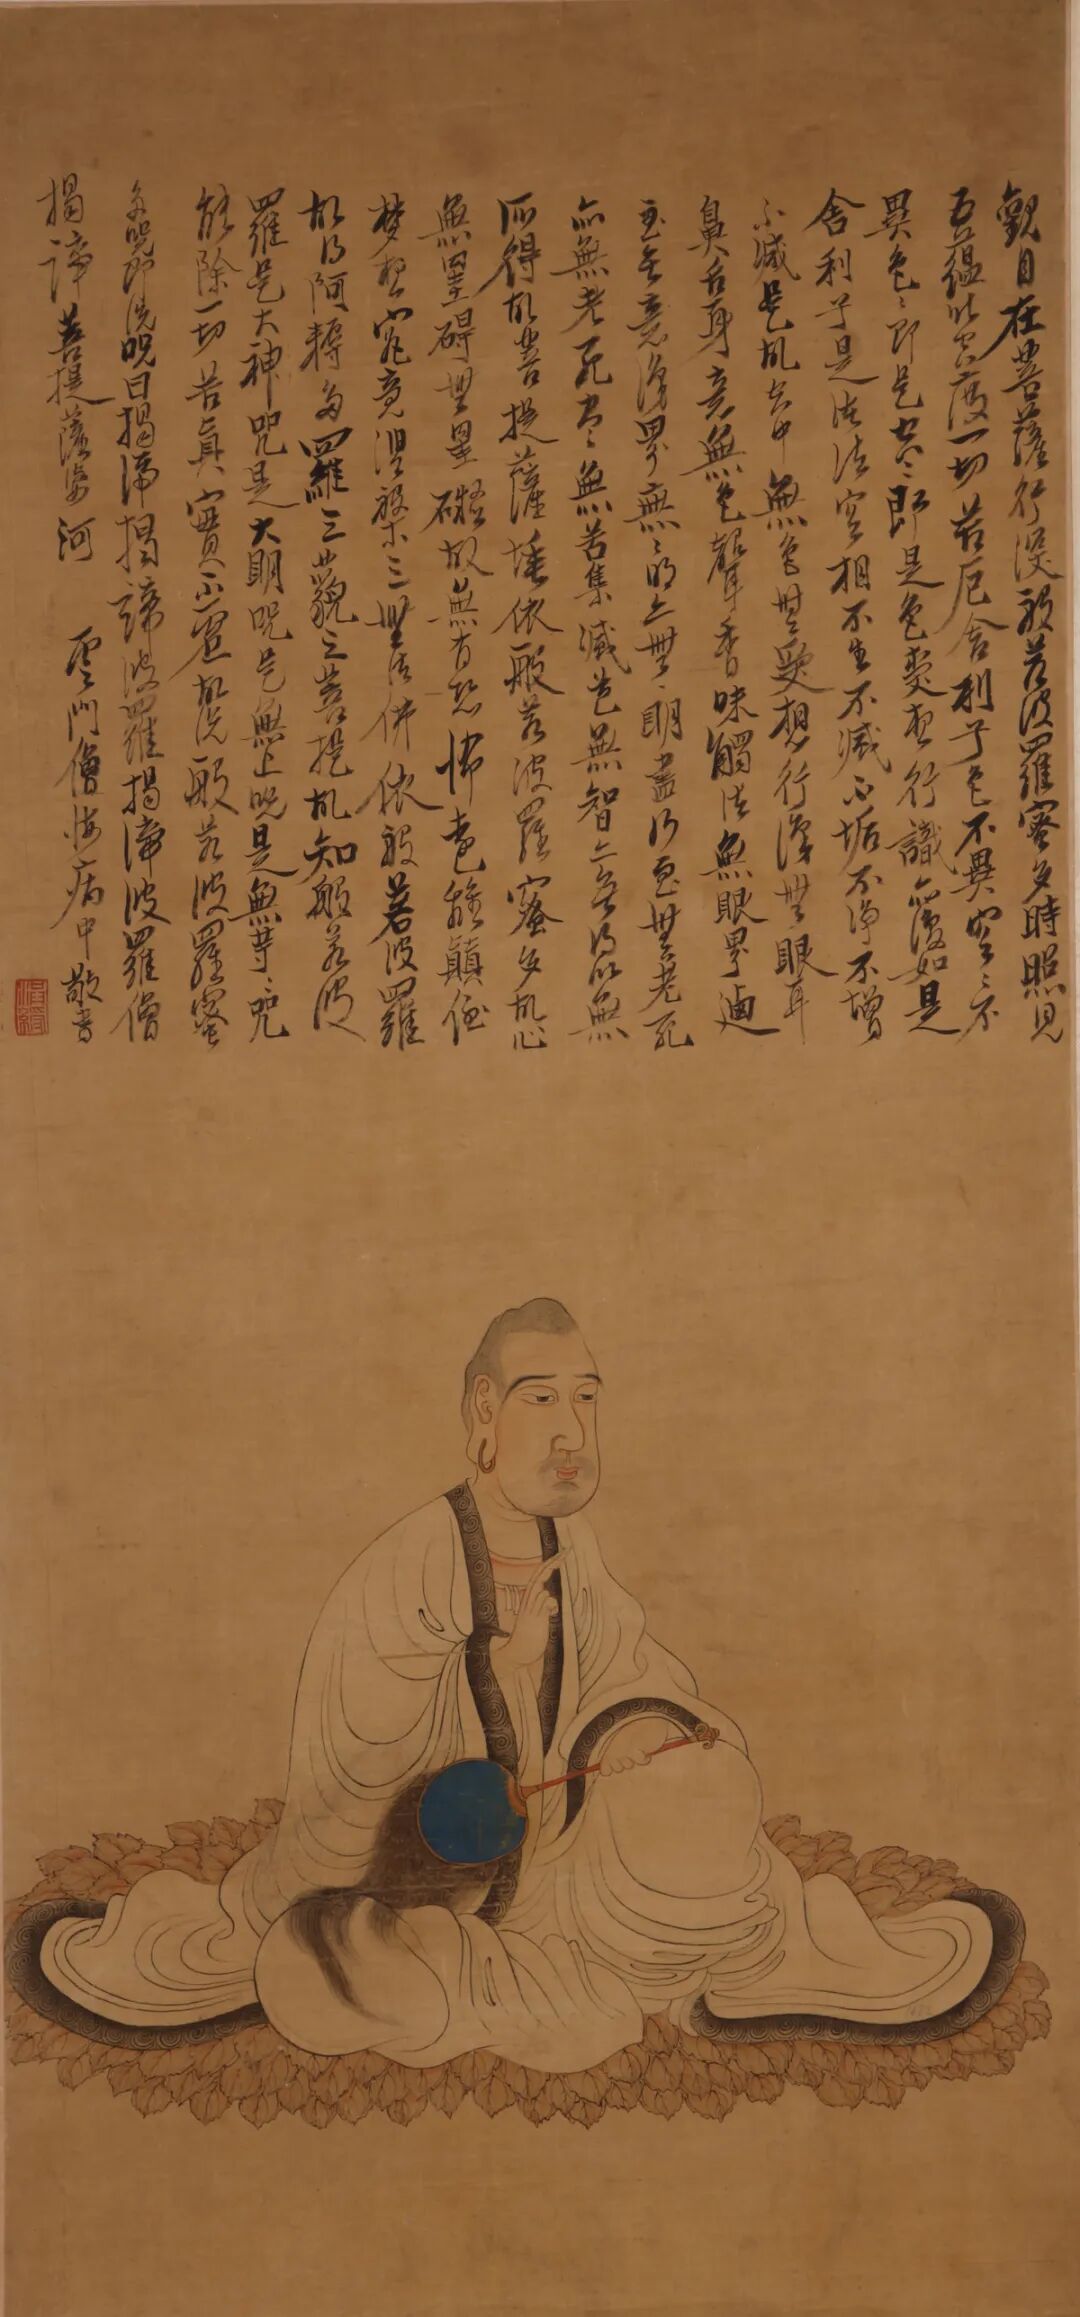 觀自在菩薩行深般若波羅蜜多時照見
五蘊皆空度一切苦厄舍利子色不異空〻不
異色〻即是空〻即是色受想行識亦復如是
舍利子是諸法空相不生不滅不垢不淨不增
不減是故空中無色無受想行識無眼耳
鼻舌身意無色聲香味觸法無眼界迺
至無意識界無〻明亦無〻明盡乃至無老死
亦無老死盡〻無苦集滅道無智亦無得以無
所得故菩提薩埵依般若波羅蜜多故心
無罣礙無罣礙故無有恐怖遠離顛倒
夢想究竟涅槃三世諸佛依般若波羅
故得阿耨多羅三藐三菩提故知般若波
羅是大神咒是大明咒是無上咒是無等〻咒
能除一切苦真實不虛故說般若波羅蜜
多咒即說咒曰揭諦揭諦波羅揭諦波羅僧
揭諦菩提薩婆河 雲門僧悔病中敬書